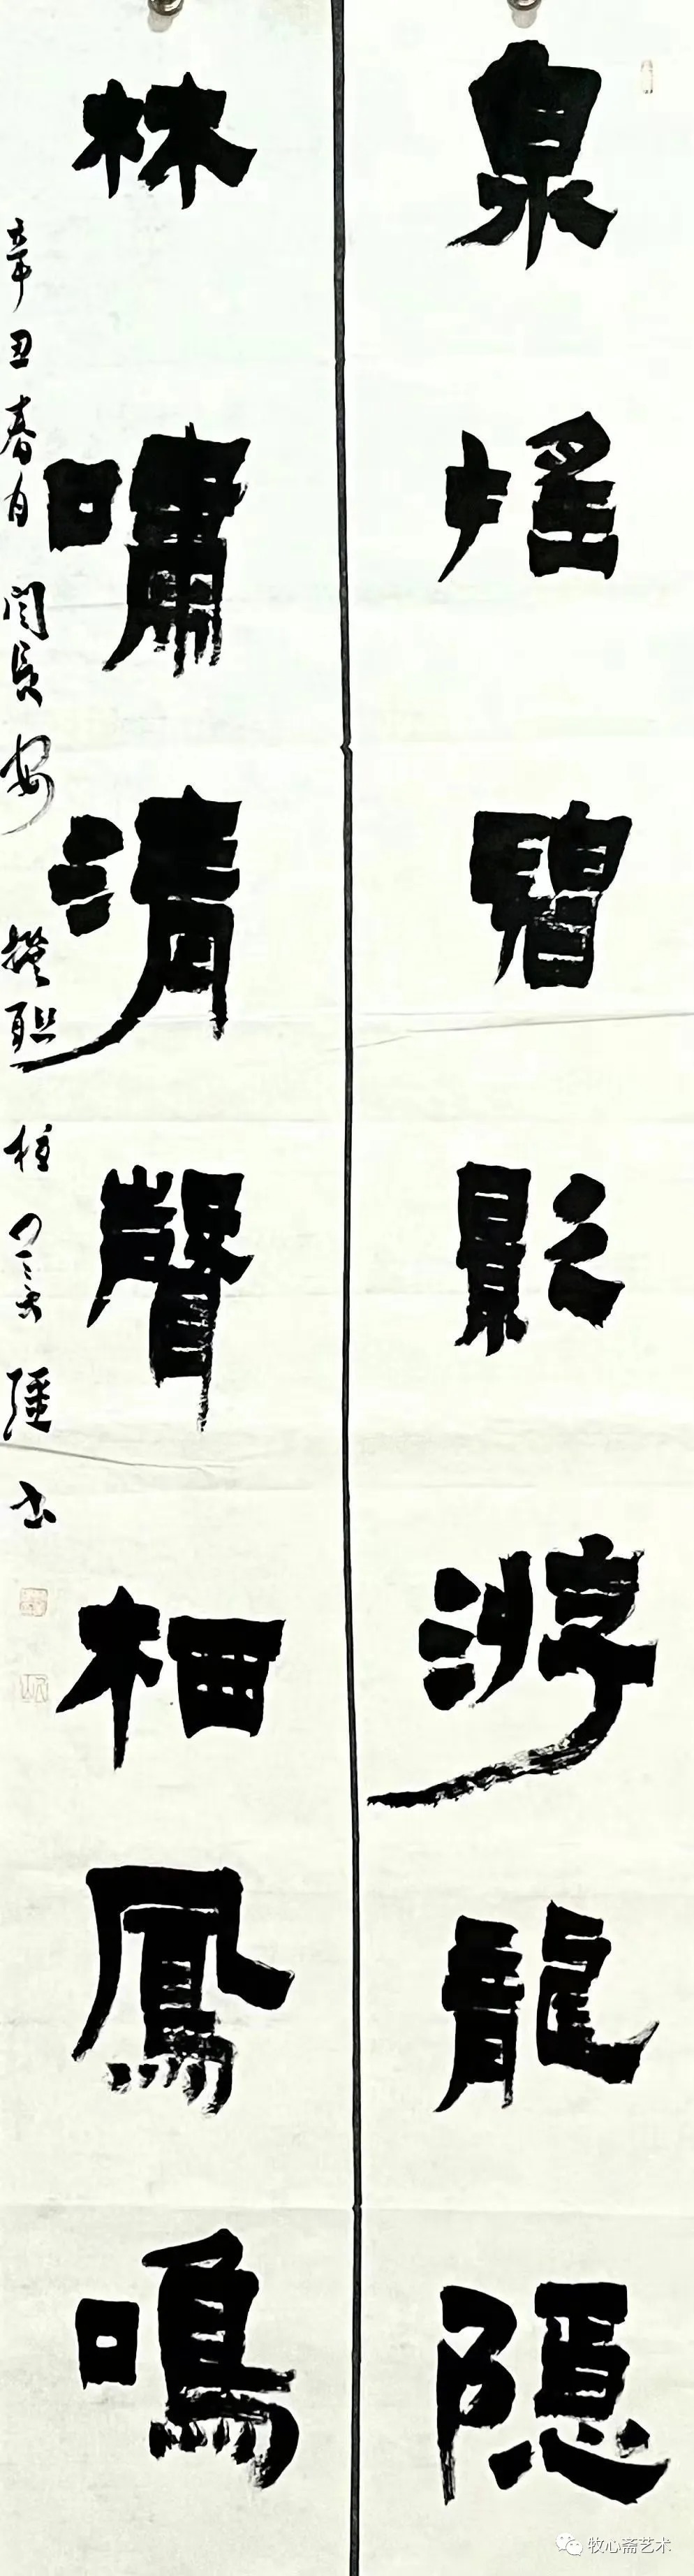 泉搖碧影游龍隱
林嘯清聲栖鳳鳴
辛丑春月閆長安撰联 書
牧心斋艺术